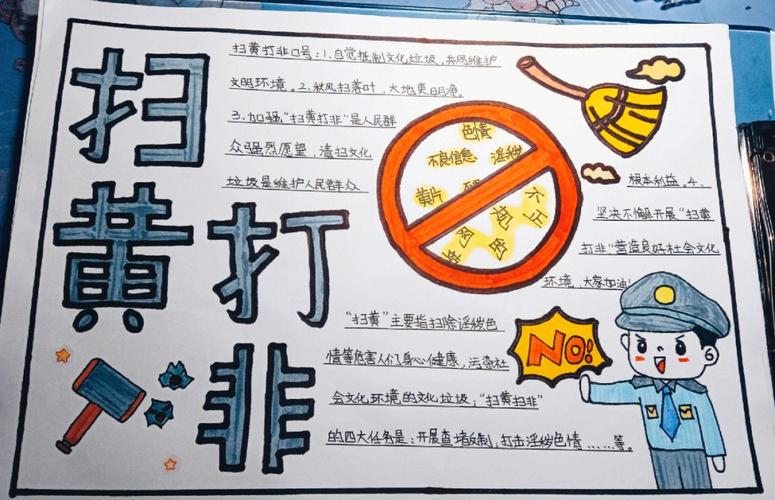 扫黄打非
扫黄打非口号：1.自觉抵制文化垃圾，共同维护
文明环境。2.秋风扫落叶，大地更明净。
3.加强“扫黄打非”是人民群
众强烈愿望，清扫文化
垃圾是维护人民群众
根本利益。4.
坚决不懈开展“扫黄
打非”营造良好社会文化
环境，大家加油！
色情
不良信息
淫秽
黄片
不正
的
网
NO!
“扫黄”主要指扫除淫秽色
情等危害人们身心健康，污染社
会文化环境的文化垃圾；“扫黄扫非”
的四大任务是：开展查堵反制，打击淫秽色情……等。